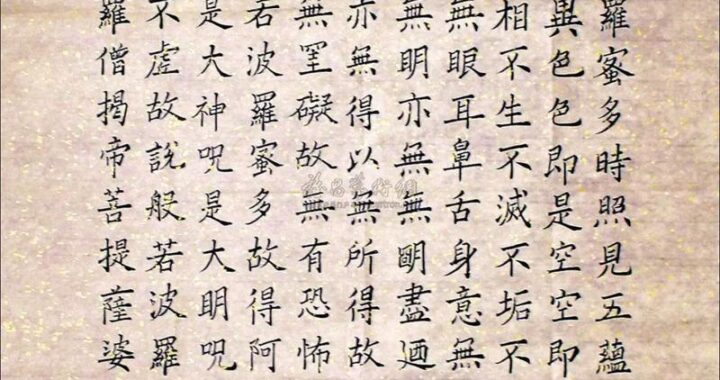 羅蜜多時照見五蘊
異色色即是空空即
相不生不滅不垢不
無眼耳鼻舌身意無
無明亦無無眀盡迺
亦無得以無所得故
無罣礙故無有恐怖
若波羅蜜多故得阿
是大神呪是大眀呪
不虛故說般若波羅
羅僧揭帝菩提薩婆